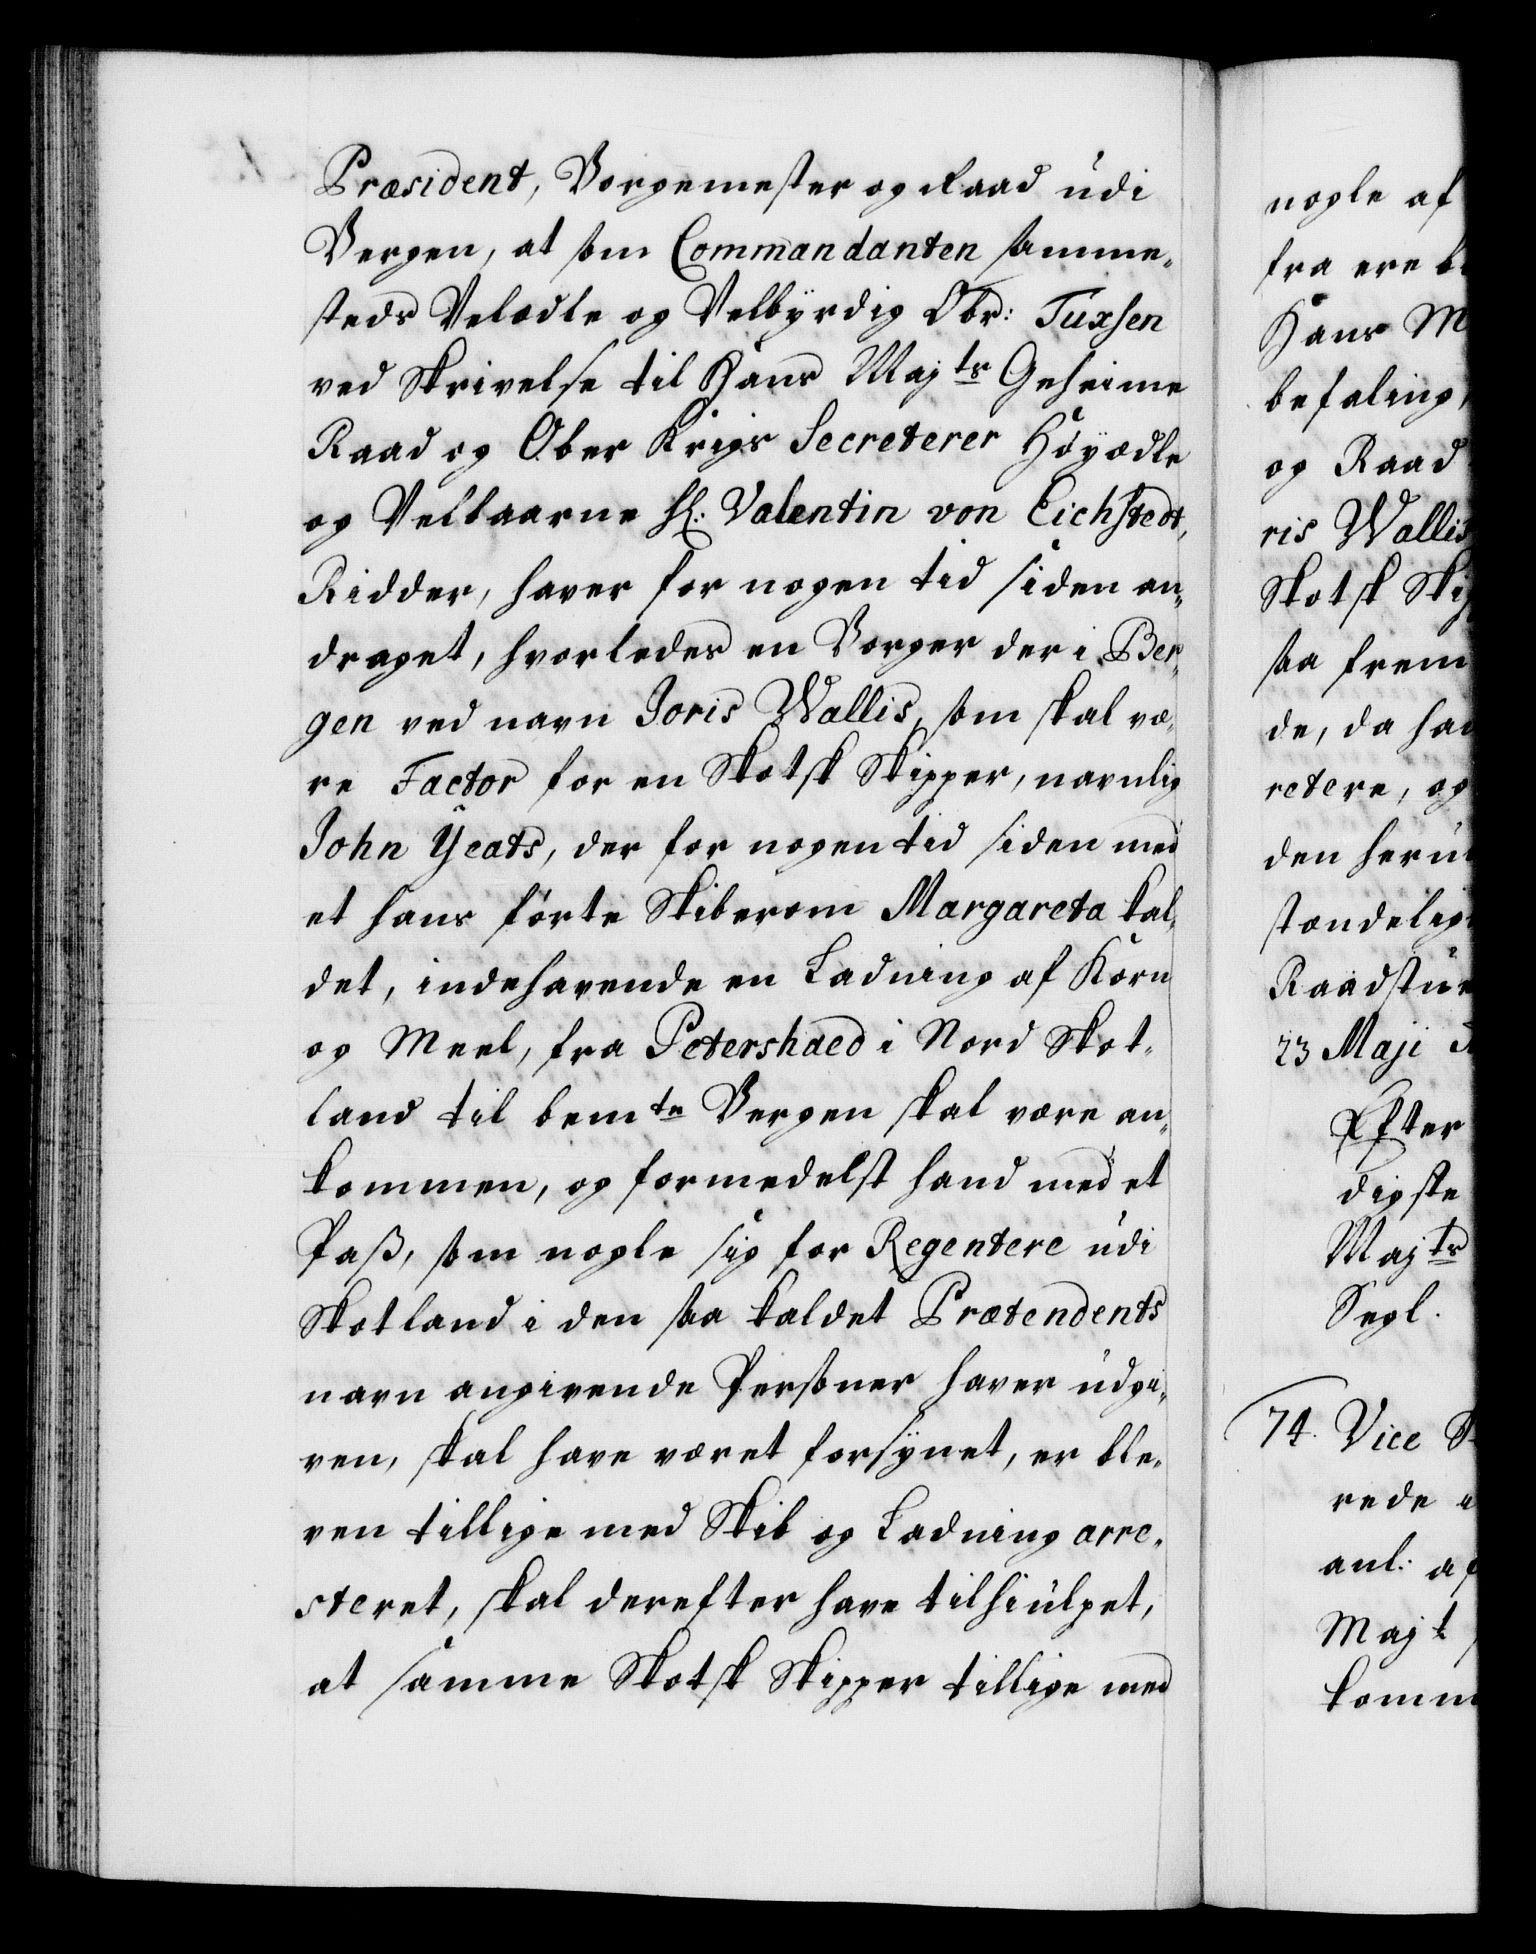 Præsident, Borgemester og Raad udi
Bergen, at som Commandanten samme„
steds Velædle og Velbÿrdig Obr: Tuxsen
ved Skrivelse til Hans Majts Geheime
Raad og Ober Krigs Secreterer Höÿædle
og Velbaarne H: Valentin von Eichstedt,
Ridder, haver for nogen tid siden an„
draget, hvorledes en Borger der i Ber„
gen ved navn Joris Wallis, som skal væ„
re Factor for en Skotsk Skipper, navnlig
John Yeats, der for nogen tid siden med
et hans förte Skiberom Margareta kal„
det, indehavende en Ladning af Korn
og Meel, fra Petershaed i Nord Skot„
land til bemte Bergen skal være an„
kommen, og formedelst hand med et
Pasß, som nogle sig for Regentere udi
Skotland i den saa kaldet Prætendents
navn angivende Persöner haver udgi„
ven, skal have været forsÿnet, er ble„
ven tillige med Skib og Ladning arre„
steret, skal derefter have tilhiulpet,
at samme Skotsk Skipper tillige med
nogle af
fra ere
Hans M
befaling,
og Raad
ris Wallis
Skotsk Ski
saa frem
de, da han
retere, og
den heru
stændelig
Raadstue
23 Maji
Efter
digste
Majts
Segl.
74. Vice
rede
anl: af
Majt
komm